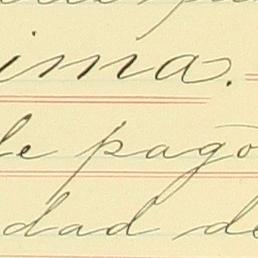 ima.
de pagó
dad de